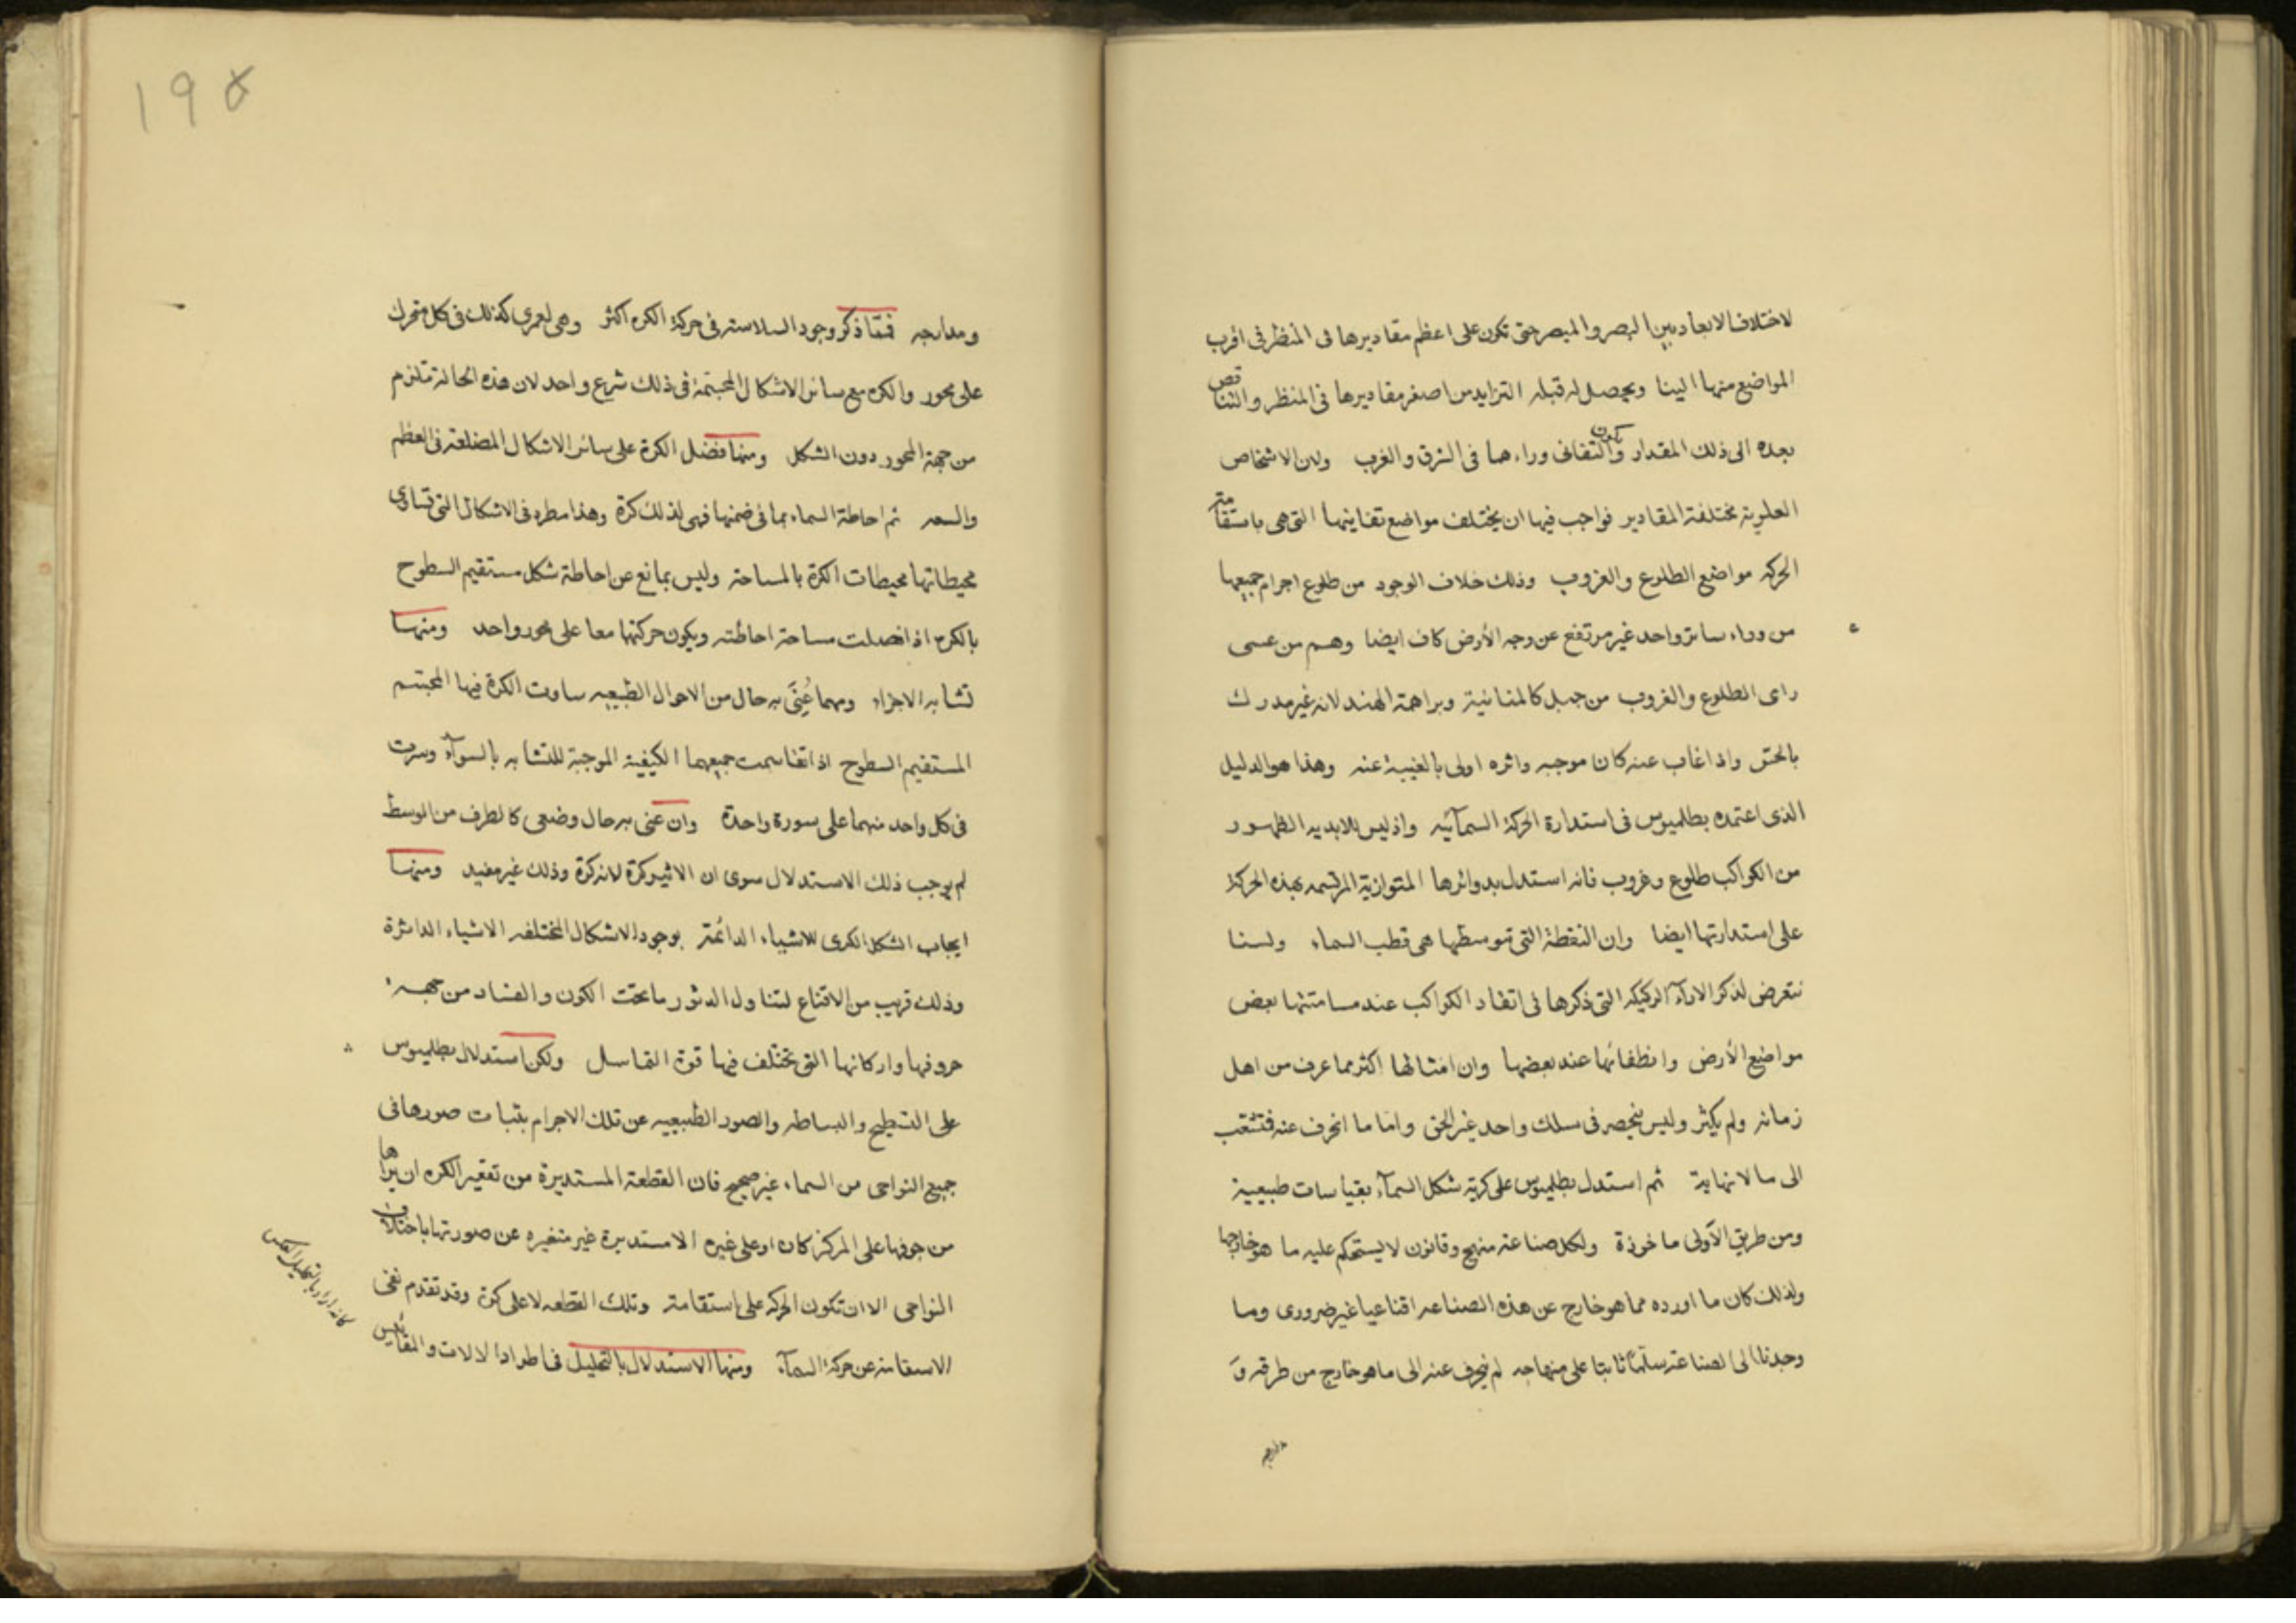 لاختلاف الابعاد بين البصر والمبصر حتى تكون على اعظم مقاديرها فى المنظر فى اقرب
المواضع منها الينا ويحصل له قبله التزايد من اصغر مقاديرها فى المنظر والتناقص
بعده الى ذلك المقدار ويكون التفانى وراءهما فى الشرق والغرب ولان الاشخاص
العلوية مختلفة المقادير فواجب فيها ان يختلف مواضع تفانيها التى هى باستقامة
الحركه مواضع الطلوع والغروب وذلك خلاف الوجود من طلوع اجرام جميعها
من وراء ساتر واحد غير مرتفع عن وجه الأرض كاف ايضا وهم من عسى
راى الطلوع والغروب من جبل كالمنانية وبراهمة الهند لانه غير مدرك
بالحس واذا غاب عنه كان موجبه واثره اولى بالغيبة عنه وهذا هو الدليل
الذى اعتمده بطلميوس فى استدارة الحركة السمآئيه واذ ليس للابديه الظهور
من الكواكب طلوع وغروب فانه استدل بدوائرها المتوازية المرتسمه بهذه الحركة
على استدارتها ايضا وان النقطة التى تتوسطها هى قطب السماء ولسنا
نتعرض لذكر الارآء الركيكه التى ذكرها فى اتقاد الكواكب عند مسامتتها بعض
مواضع الأرض وانطفائها عند بعضها وان امثالها اكثر مما عرف من اهل
زمانه ولم يكثر وليس ينحصر فى سلك واحد غير الحق واما ما انحرف عنه فتشعب
الى ما لا نهاية ثم استدل بطلميوس على كرية شكل السمآء بقياسات طبيعية
ومن طريق الأولى ماخوذة ولكل صناعة منهج وقانون لا يستحكم عليه ما هو خارجها
ولذلك كان ما اورده مما هو خارج عن هذه الصناعه اقناعيا غير ضرورى وما
وجدنا الى لصناعة سلما ثابتا على منهاجه لم ينحرف عنه الى ما هو خارج من طرقه و
ومدارجه
195
ومدارجه فمما ذكر وجود السلاسته فى حركة الكره اكثر وهى لعمرى كذلك فى كل متحرك
على محور والكره مع سائر الاشكال المجسمة فى ذلك شرع واحد لان هذه الحالة تلزم
من جهة المحور دون الشكل ومنها فضل الكرة على سائر الاشكال المضلعة فى العظم
والسعه ثم احاطة السماء بما فى ضمنها فهى لذلك كرة وهذا مطرد فى الاشكال التى تساوى
محيطاتها محيطات الكرة بالمساحة وليس بمانع عن احاطة شكل مستقيم السطوح
بالكره اذا فضلت مساحة احاطته ويكون حركتها معا على محور واحد ومنها
تشابه الاجزاء ومهما عُنِىَ به حال من الاحوال الطبيعيه ساوت الكرة فيها المجسم
المستقيم السطوح اذا تقاسمت جميعهما الكيفية الموجبة للتشابه بالسوآء وسرت
فى كل واحد منهما على سورة واحدة وان عنى به حال وضعى كالطرف من الوسط
لم يوجب ذلك الاستدلال سوى ان الاثير كرة لانه كرة وذلك غير مفيد ومنها
ايجاب الشكل الكرى للاشياء الدائمة بوجود الاشكال المختلفه الاشياء الداثرة
وذلك قريب من الاقناع لتناول الدثور ما تحت الكون والفساد من جهة
حروفها واركانها التى تختلف فيها قوة التماسك ولكن استدلال بطلميوس
على التسطيح والبساطه والصور الطبيعيه عن تلك الاجرام بثبات صورها فى
جميع النواحى من السماء غير صحيح فان القطعة المستديرة من تقعير الكره ان يراها
من جوفها على المركز كان او على غيره الا مستديرة غير متغيره عن صورتها باختلاف
النواحى الا ان تكون الحركه على استقامة وتلك القطعه لا على كرة وقد تقدم نفى
الاستقامة عن حركة السمآء ومنها الاستدلال بالتحليل فى اطراد الالات والمقائيس
كانه اراد بالتحليل العكس